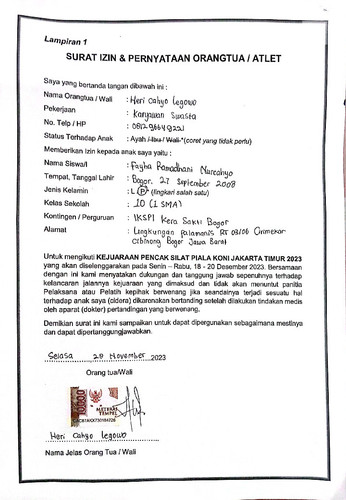 Lampiran 1
SURAT IZIN & PERNYATAAN ORANGTUA / ATLET
Saya yang bertanda tangan dibawah ini :
Nama Orangtua / Wali : Heri cahyo Legowo
Pekerjaan : Karyawan Swasta
No. Telp / HP : 081296649221
Status Terhadap Anak : Ayah / Ibu / Wali * (coret yang tidak perlu)
Memberikan Izin kepada anak saya yaitu :
Nama Siswa/i : Fayha Ramadhani Nurcahyo
Tempat, Tanggal Lahir : Bogor, 27 September 2008
Jenis Kelamin : L / P * (lingkari salah satu)
Kelas Sekolah : 10 (1 SMA)
Kontingen / Perguruan : IKSPI Kera Sakti Bogor
Alamat : Lingkungan RT 03/06
Cibinong Bogor Jawa Barat
Untuk mengikuti KEJUARAAN PENCAK SILAT PIALA KONI JAKARTA TIMUR 2023
yang akan diselenggarakan pada Senin – Rabu, 18 - 20 Desember 2023. Bersamaan
dengan ini kami menyatakan dukungan dan tanggung jawab sepenuhnya terhadap
kelancaran jalannya kejuaraan yang dimaksud dan tidak akan menuntut panitia
Pelaksana atau Pelatih kepihak berwenang jika seandainya terjadi sesuatu hal
terhadap anak saya (cidera) dikarenakan bertanding setelah dilakukan tindakan medis
oleh aparat (dokter) pertandingan yang berwenang.
Demikian surat ini kami sampaikan untuk dapat dipergunakan sebagaimana mestinya
dan dapat dipertanggungjawabkan.
Selasa 28 November 2023
Orang tua/Wali
10000
METERAI
TEMPEL
Heri cahyo Legowo
Nama Jelas Orang Tua / Wali